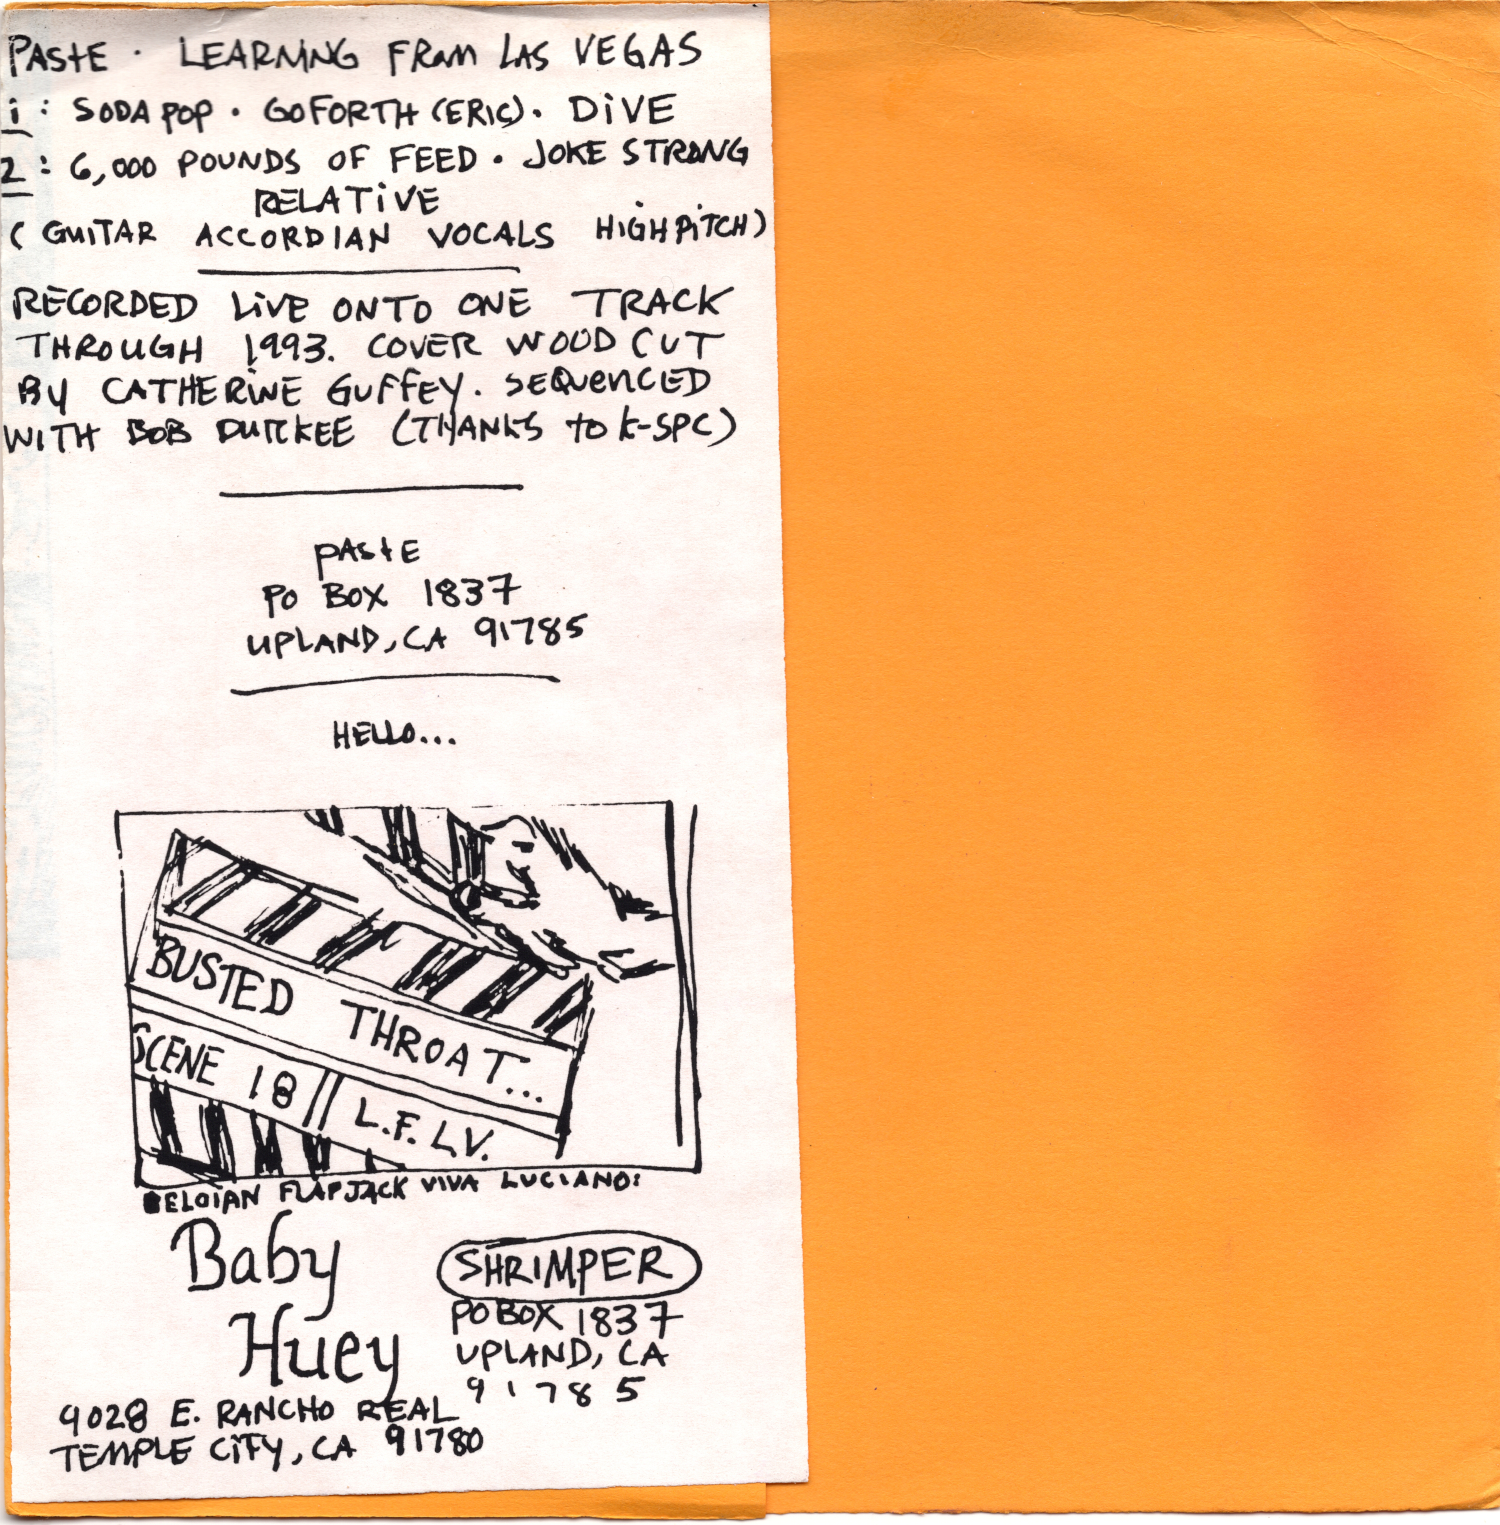 PASTE · LEARNING FROM LAS VEGAS
1: SODA POP · GOFORTH (ERIC) · DIVE
2: 6,000 POUNDS OF FEED · JOKE STRONG
RELATIVE
(GUITAR ACCORDIAN VOCALS HIGH PITCH)
RECORDED LIVE ONTO ONE TRACK
THROUGH 1993. COVER WOODCUT
BY CATHERINE GUFFEY. SEQUENCED
WITH BOB DURKEE (THANKS TO K-SPC)
PASTE
PO BOX 1837
UPLAND, CA 91785
HELLO...
BUSTED THROAT...
SCENE 18 L.F.L.V.
BELGIAN FLAPJACK VIVA LUCIANO:
Baby
Huey
9028 E. RANCHO REAL
TEMPLE CITY, CA 91780
SHRIMPER
PO BOX 1837
UPLAND, CA
91785